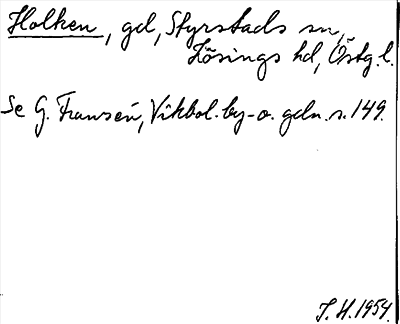 Holken, gd, Styrstads sn,
Lösings hd, Östg.l.
Se G. Fransén, Vikbol. by- o. gdn. s. 149.
J. H. 1954.